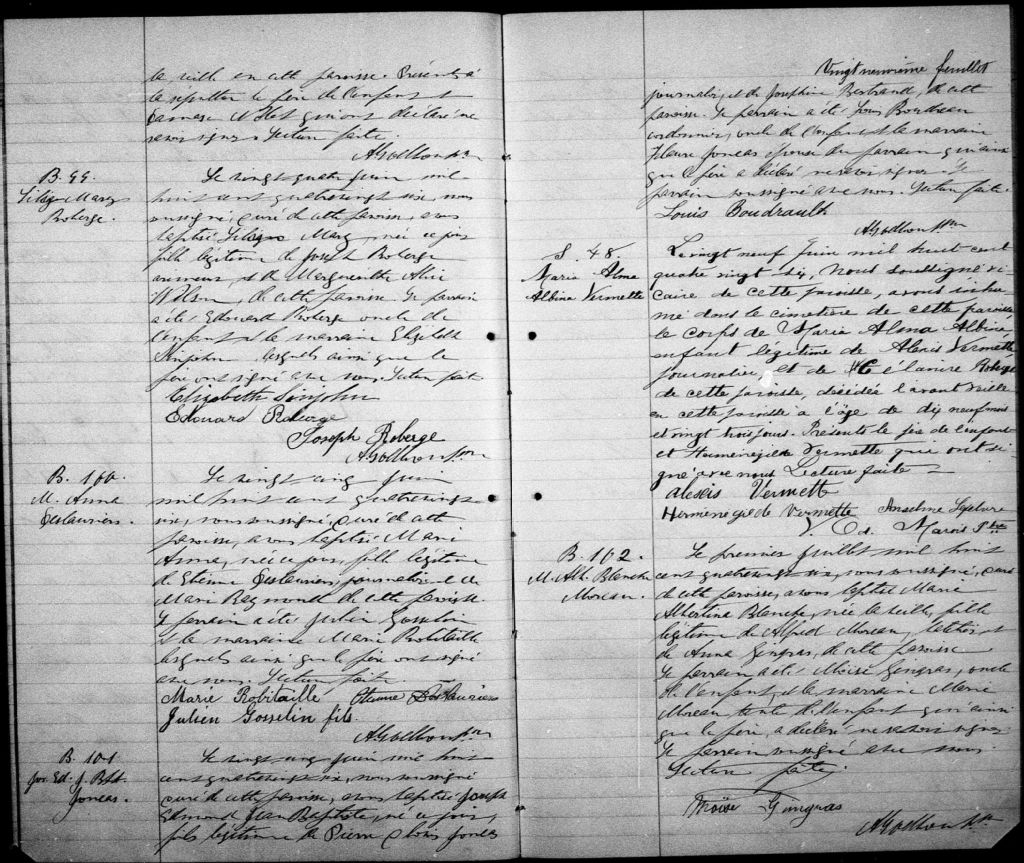 la veille en cette paroisse. Présents à
la sépulture le père de l'enfant et
qui ont déclaré ne
savoir signer. Lecture faite.
B. 99.
Mary
Roberge.
Le vingt quatre Juin mil
huit cent quatrevingt six, nous
soussigné, curé de cette paroisse, avons
baptisé Mary, née ce jour
fille légitime de Joseph Roberge
et de Marguerite Alice
Wilson, de cette paroisse. Le parrain
a été Edouard Roberge oncle de
l'enfant et la marraine Elizabeth
Simjohn lesquels ainsi que le
père ont signé avec nous. Lecture faite
Elizabeth Simjohn
Edouard Roberge
Joseph Roberge
B. 100.
M. Anna
Deslauriers.
Le vingt cinq Juin
mil huit cent quatrevingt
six, nous soussigné, curé de cette
paroisse, avons baptisé Marie
Anna, née ce jour, fille légitime
de Etienne Deslauriers, journalier et de
Marie Raymond de cette paroisse.
Le parrain a été Julien Gosselin
et la marraine Marie Robitaille
lesquels ainsi que le père ont signé
avec nous. Lecture faite
Marie Robitaille Etienne Deslauriers
Julien Gosselin fils.
B. 101
Jos. Ed. J. Bpt.
Joncas.
Le vingt cinq Juin mil huit
cent quatrevingt six, nous soussigné
curé de cette paroisse, avons baptisé Joseph
Edmond Jean Baptiste, né ce jour,
fils légitime de Pierre Joncas
Vingt neuvième feuillet
journalier, et de Joséphine Bertrand, de cette
paroisse. Le parrain a été Louis Boudreau
cordonnier, oncle de l'enfant et la marraine
Joncas épouse du parrain qui ainsi
que le père a déclaré ne savoir signer. Le
parrain soussigné avec nous. Lecture faite.
Louis Boudrault
S. 48.
Marie Alma
Albina Vermette
Le vingt neuf Juin mil huit cent
quatre vingt six, Nous soussigné vi-
caire de cette paroisse, avons inhu-
mé dans le cimetière de cette paroisse
le corps de Marie Alma Albina
enfant légitime de Alexis Vermette
journalier et de Roberge
de cette paroisse, décédée l'avant veille
en cette paroisse à l'âge de dix neuf mois
et vingt trois jours. Présents le père de l'enfant
et Herménégilde Vermette qui ont si-
gné avec nous Lecture faite
alexis Vermett
Hermenegilde Vermette Anselme Lefebvre
Ed. Marois Ptre
B. 102
M. Alb. Blanche
Moreau.
Le premier Juillet mil huit
cent quatrevingt six, nous soussigné, curé
de cette paroisse, avons baptisé Marie
Albertina Blanche, née la veille, fille
légitime de Alfred Moreau, et
de Anna Gingras, de cette paroisse
Le parrain a été Moïse Gingras, oncle
de l'enfant, et la marraine Marie
Moreau, tante de l'enfant qui ainsi
que le père, a déclaré ne savoir signer
Le parrain soussigné avec nous.
Lecture faite.
Moïse Gingras